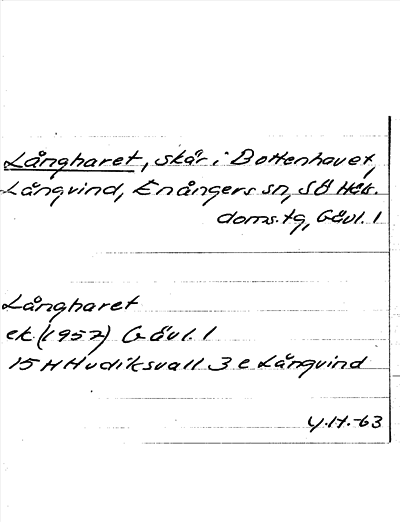 Långharet, skär i Bottenhavet,
Långvind, Enångers sn, SÖ Häls.
doms.tg, Gävl. l
Långharet
ek (1957) Gävl. l
15 H Hudiksvall 3 e Långvind
Y.H.-63